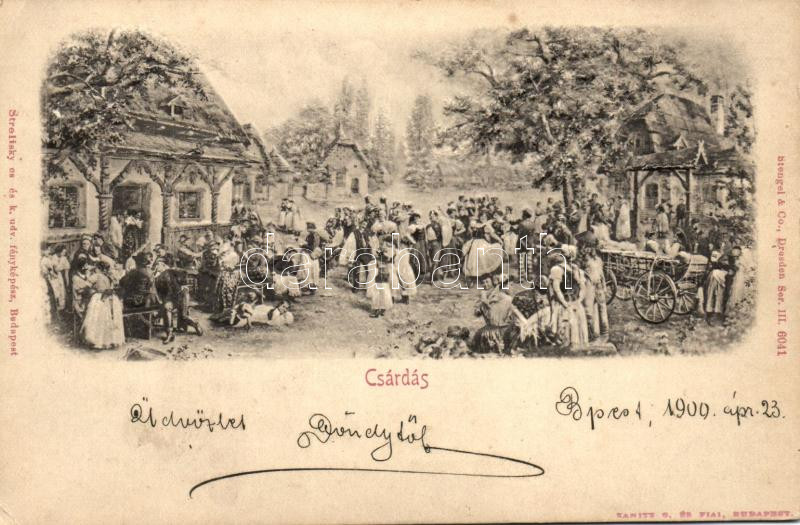 Strelisky cs és k. udv. fényképész, Budapest
Stengel & Co., Dresden Ser. III. 6041
darabanth.com
Csárdás
Üdvözlet
Böndytől
Bpest, 1900. ápr. 23.
ZANITZ G. ÉS FIAI, BUDAPEST.